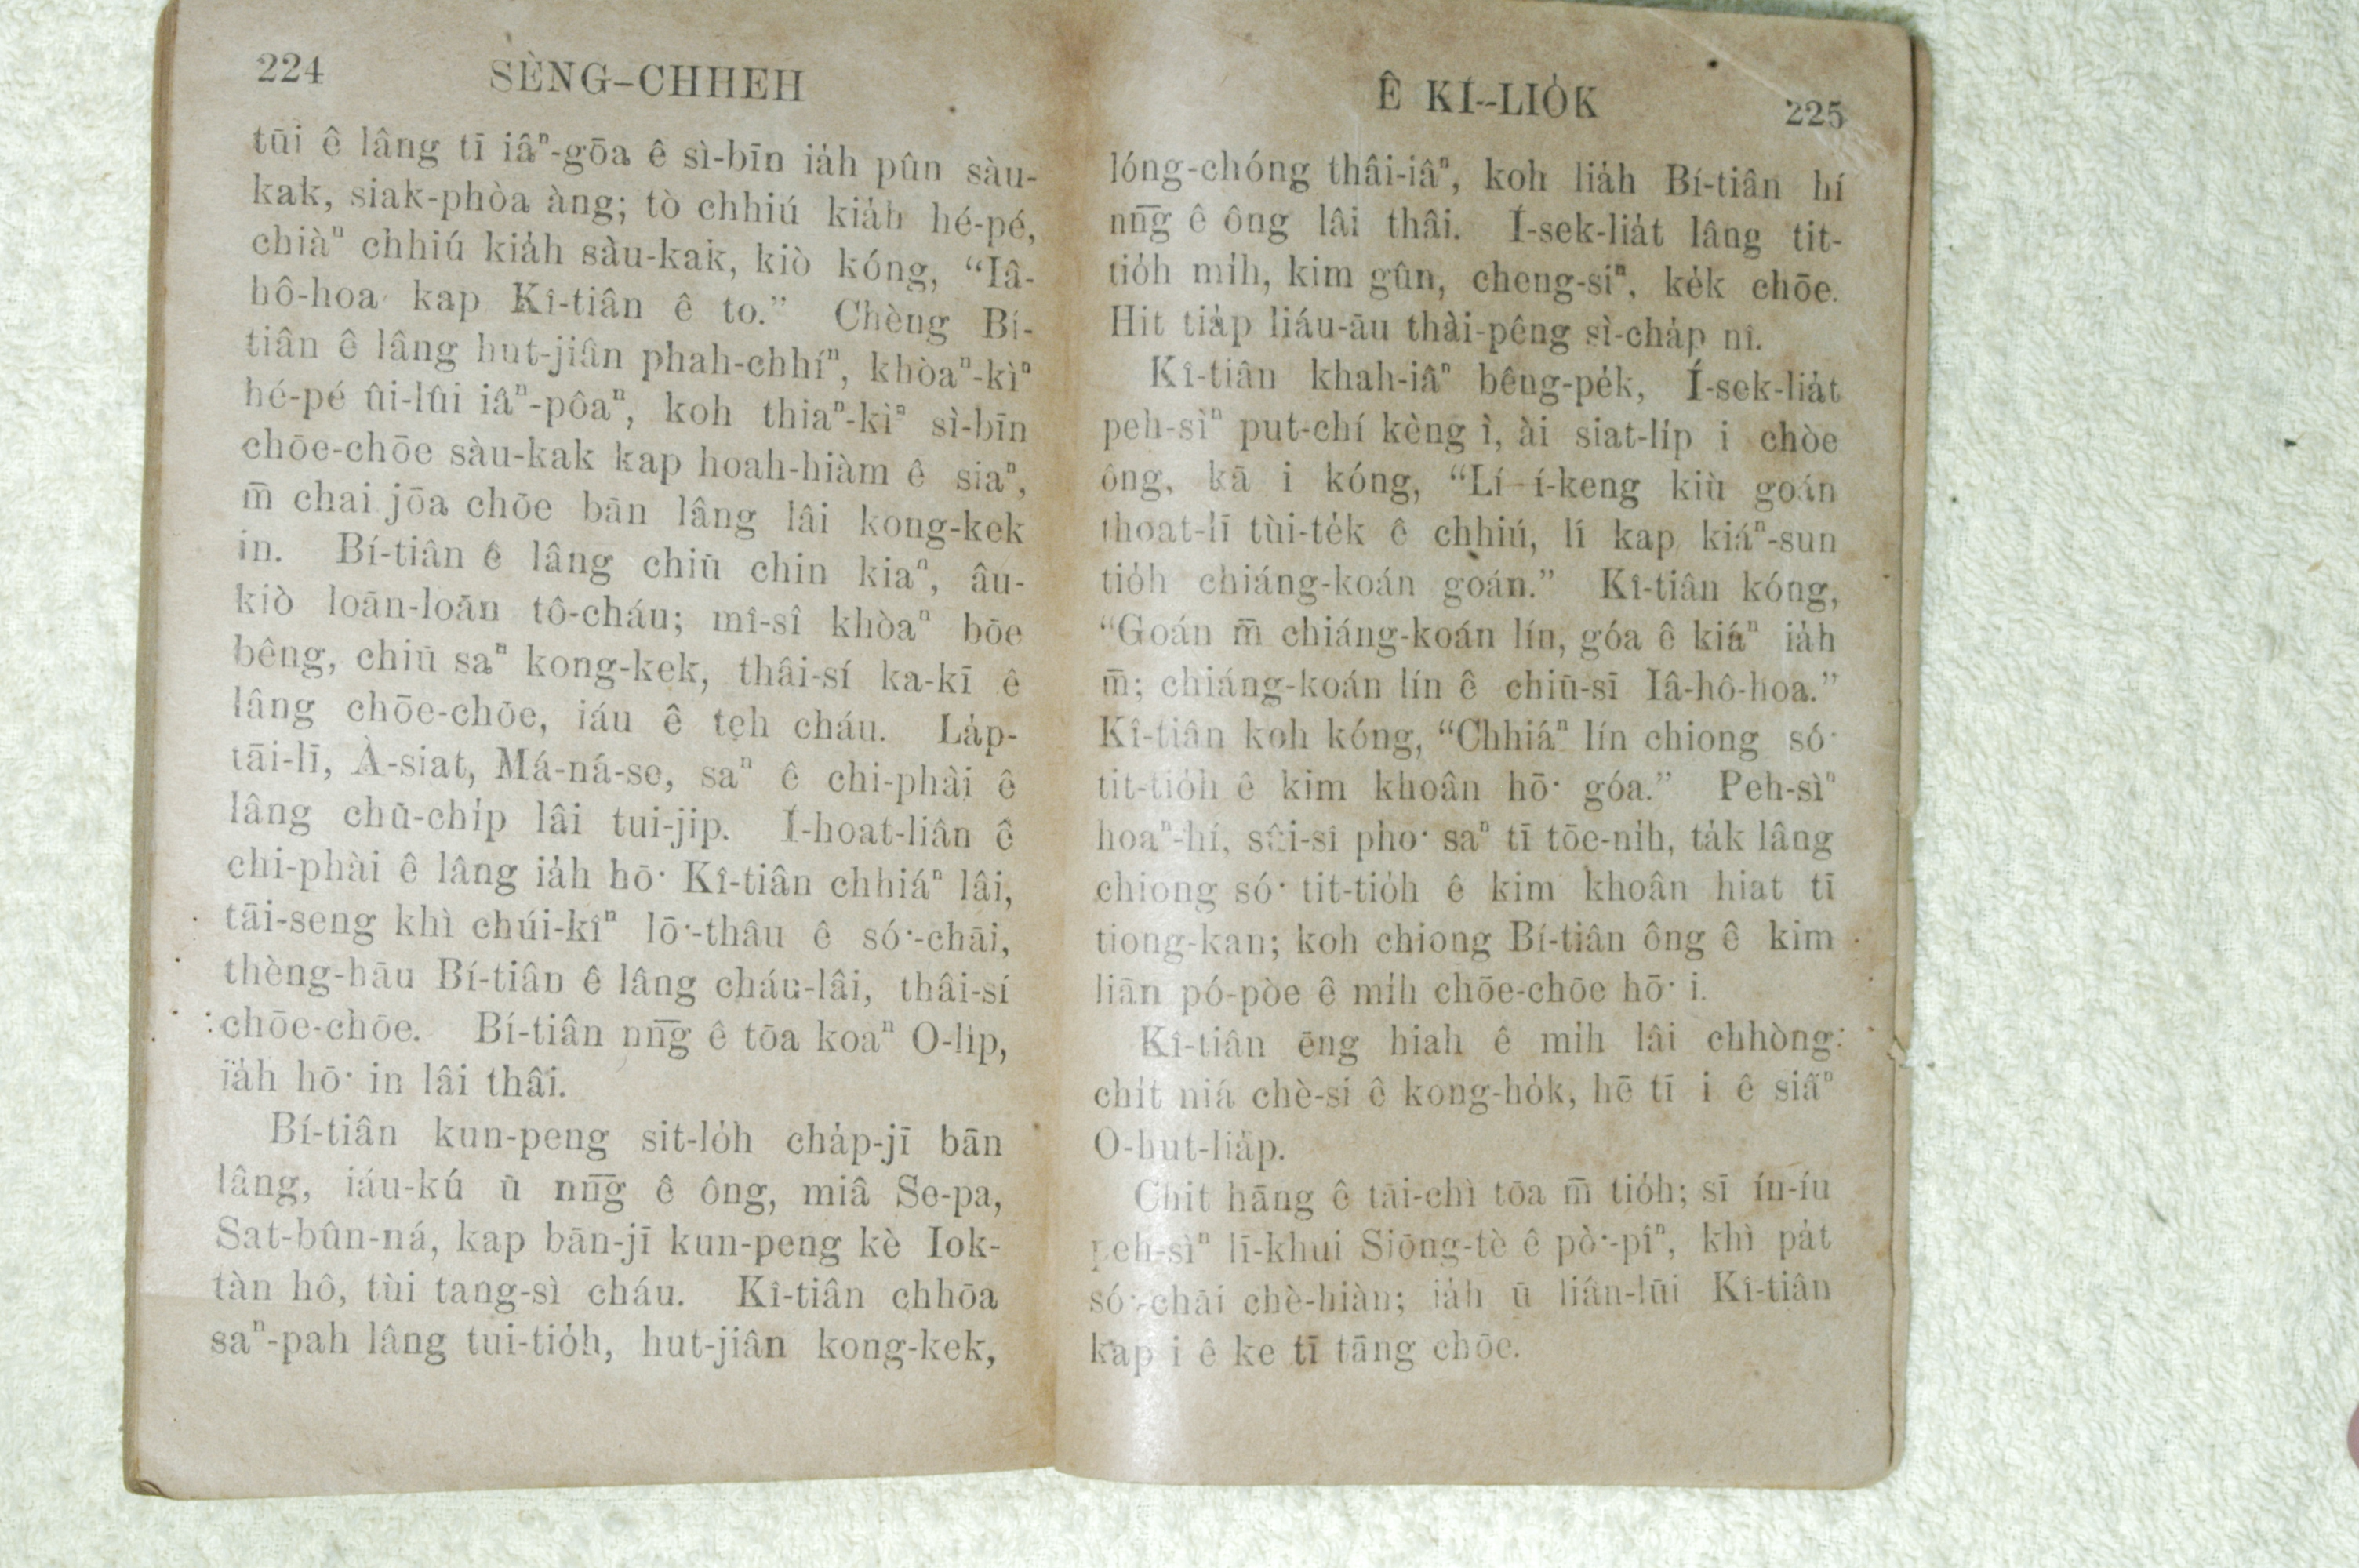 224 SÈNG-CHHEH
tūi ê lâng tī iâⁿ-gōa ê sì-bīn ia̍h pûn sàu-
kak, siak-phòa àng; tò chhiú kia̍h hé-pé,
chiàⁿ chhiú kia̍h sàu-kak, kiò kóng, “Iâ-
hô-hoa kap Kî-tiân ê to.” Chèng Bí-
tiân ê lâng hut-jiân phah-chhíⁿ, khòaⁿ-kìⁿ
hé-pé ûi-lûi iâⁿ-pôaⁿ, koh thiaⁿ-kìⁿ sì-bīn
chōe-chōe sàu-kak kap hoah-hiàm ê siaⁿ,
m̄ chai jōa chōe bān lâng lâi kong-kek
in. Bí-tiân ê lâng chiū chin kiaⁿ, âu-
kiò loān-loān tô-cháu; mî-sî khòaⁿ bōe
bêng, chiū saⁿ kong-kek, thâi-sí ka-kī ê
lâng chōe-chōe, iáu ê teh cháu. La̍p-
tāi-lī, À-siat, Má-ná-se, saⁿ ê chi-phài ê
lâng chū-chi̍p lâi tui-jip. Í-hoat-liân ê
chi-phài ê lâng ia̍h hō͘ Kî-tiân chhiáⁿ lâi,
tāi-seng khì chúi-kîⁿ lō͘-thâu ê só͘-chāi,
thèng-hāu Bí-tiân ê lâng cháu-lâi, thâi-sí
chōe-chōe. Bí-tiân nn̄g ê tōa koaⁿ O-li̍p,
ia̍h hō͘ in lâi thâi.
Bí-tiân kun-peng sit-lo̍h cha̍p-jī bān
lâng, iáu-kú ū nn̄g ê ông, miâ Se-pa,
Sat-bûn-ná, kap bān-jī kun-peng kè Iok-
tàn hô, tùi tang-sì cháu. Kî-tiân chhōa
saⁿ-pah lâng tui-tio̍h, hut-jiân kong-kek,
Ê KÍ-LIO̍K 225
lóng-chóng thâi-iâⁿ, koh lia̍h Bí-tiân hí
nn̄g ê ông lâi thâi. Í-sek-lia̍t lâng tit-
tio̍h mi̍h, kim gûn, cheng-siⁿ, ke̍k chōe.
Hit tia̍p liáu-āu thài-pêng sì-cha̍p nî.
Kî-tiân khah-iâⁿ bêng-pe̍k, Í-sek-lia̍t
peh-sìⁿ put-chí kèng ì, ài siat-li̍p i chòe
ông, kā i kóng, “Lí í-keng kiù goán
thoat-lī tùi-te̍k ê chhiú, lí kap kiáⁿ-sun
tio̍h chiáng-koán goán.” Kî-tiân kóng,
“Goán m̄ chiáng-koán lín, góa ê kiáⁿ ia̍h
m̄; chiáng-koán lín ê chiū-sī Iâ-hô-hoa.”
Kî-tiân koh kóng, “Chhiáⁿ lín chiong só͘
tit-tio̍h ê kim khoân hō͘ góa.” Peh-sìⁿ
hoaⁿ-hí, sûi-sî pho͘ saⁿ tī tōe-ni̍h, ta̍k lâng
chiong só͘ tit-tio̍h ê kim khoân hiat tī
tiong-kan; koh chiong Bí-tiân ông ê kim
liān pó-pòe ê mi̍h chōe-chōe hō͘ i.
Kî-tiân ēng hiah ê mi̍h lâi chhòng
chi̍t niá chè-si ê kong-ho̍k, hē tī i ê siâⁿ
O-hut-lia̍p.
Chit hāng ê tāi-chì tōa m̄ tio̍h; sī ín-íu
peh-sìⁿ lī-khui Siōng-tè ê pò͘-pîⁿ, khì pa̍t
só͘-chāi chè-hiàn; ia̍h ū liân-lūi Kî-tiân
kap i ê ke tī tāng chōe.